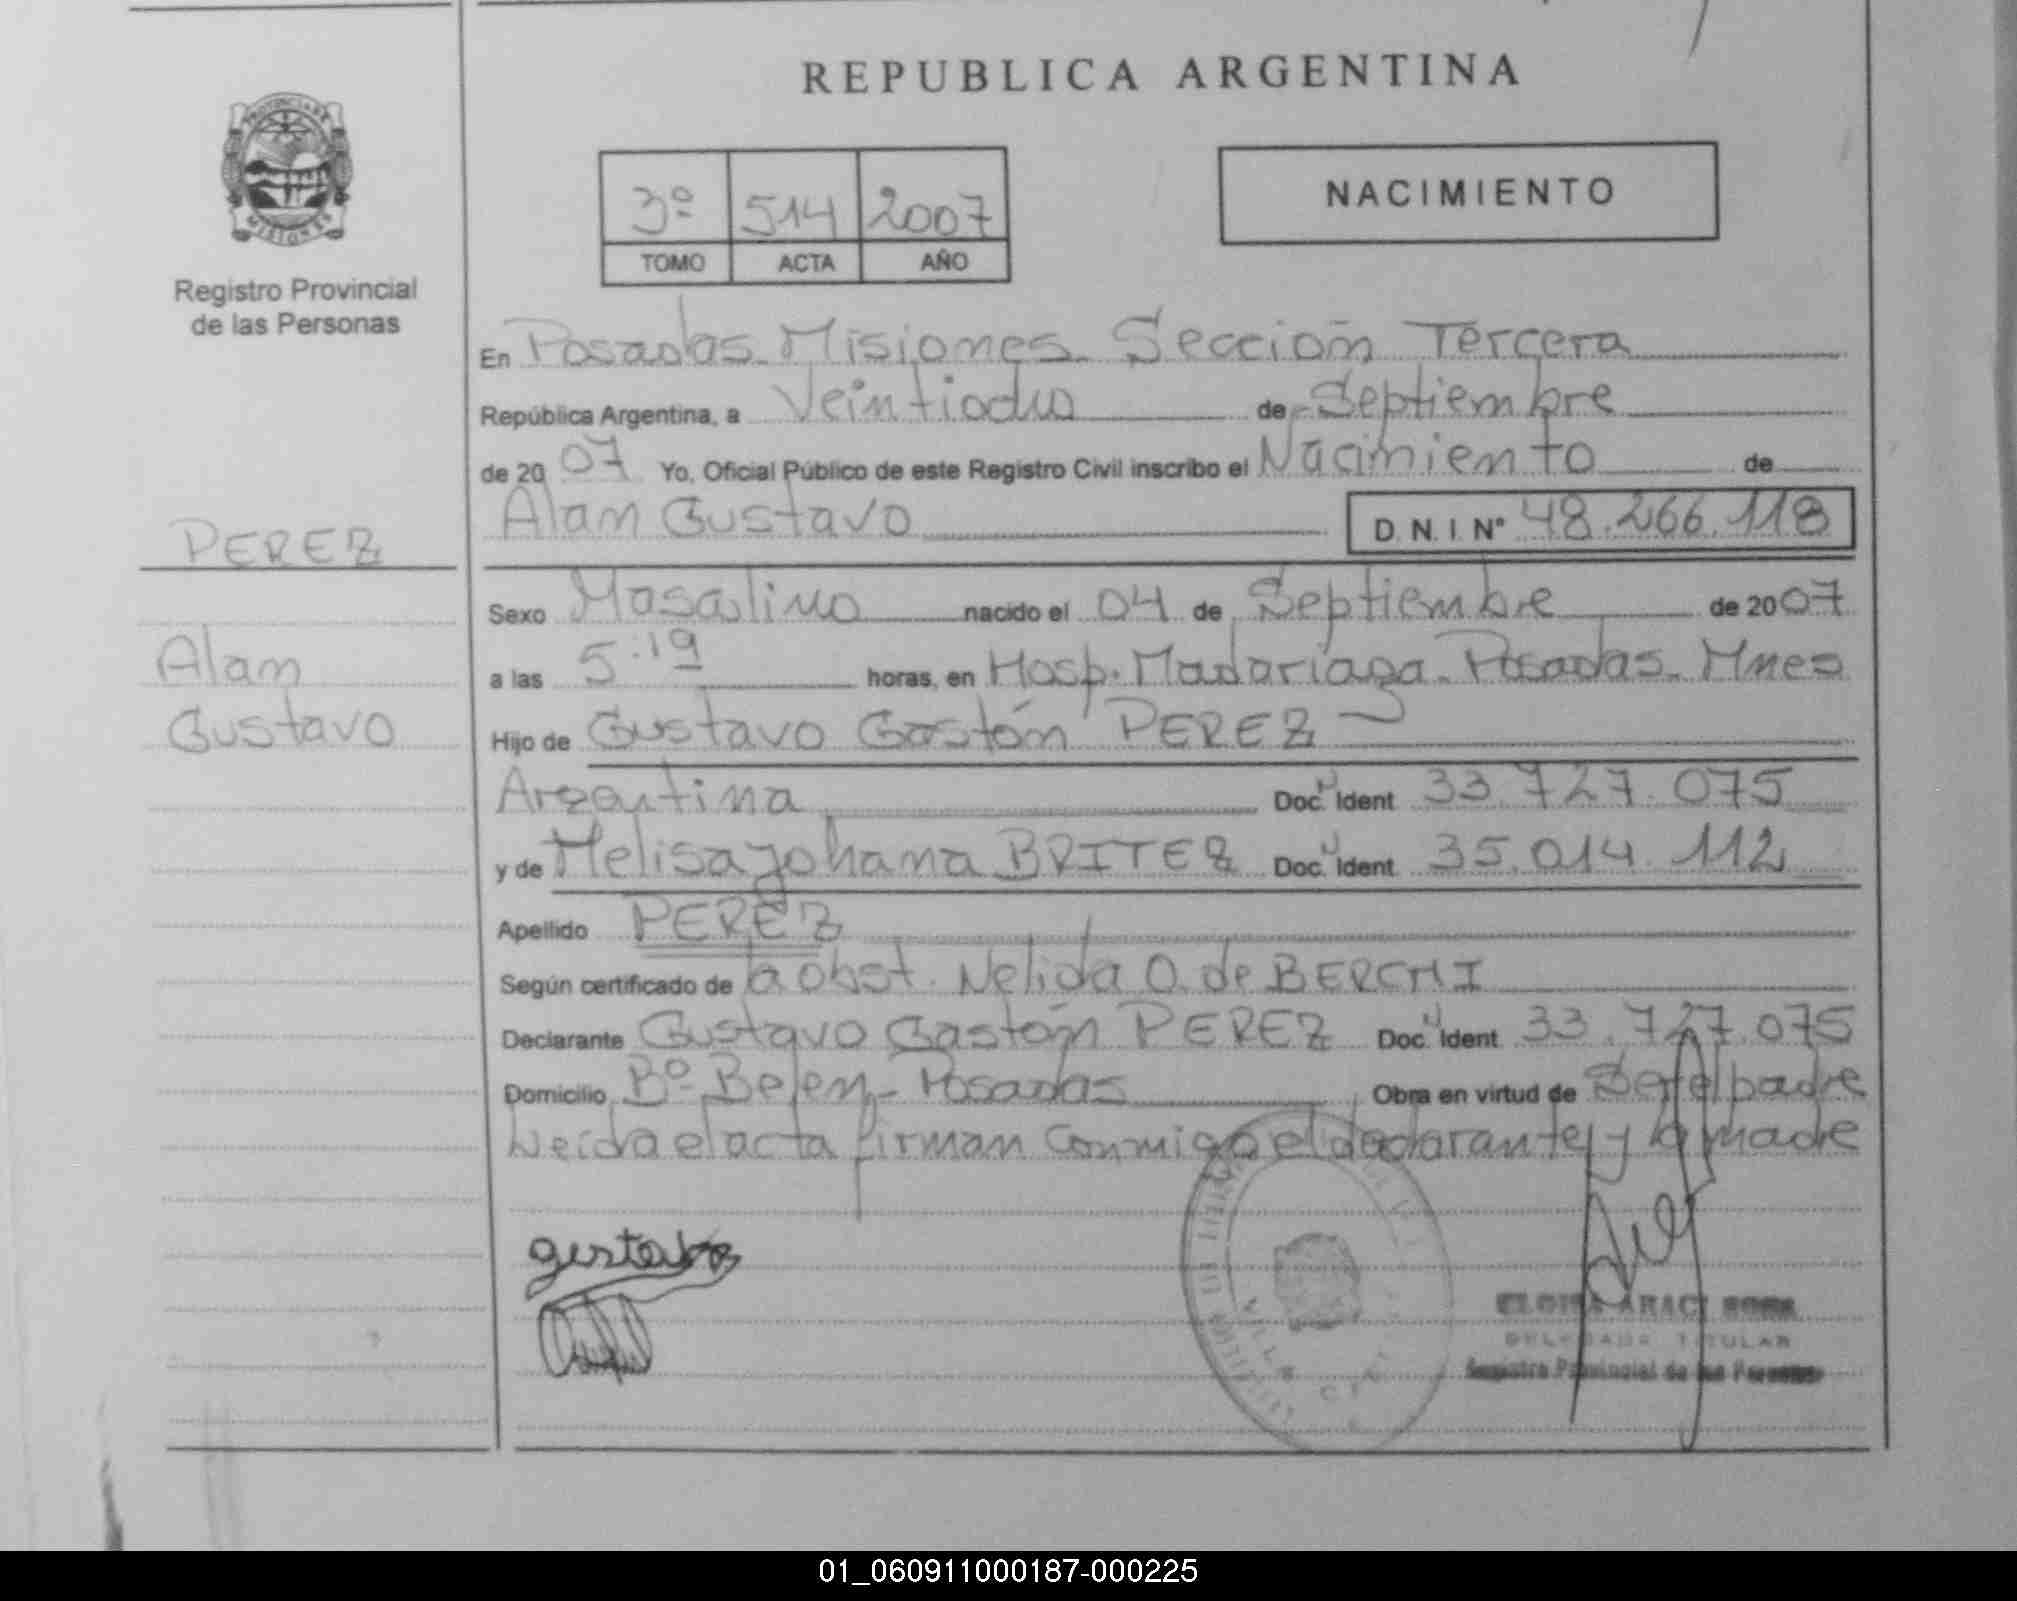 REPUBLICA ARGENTINA
PROVINCIA DE
MISIONES
Registro Provincial
de las Personas
3º 514 2007
TOMO ACTA AÑO
NACIMIENTO
En Posadas Misiones Sección Tercera
República Argentina, a Veintiocho de Septiembre
de 2007 Yo, Oficial Público de este Registro Civil inscribo el Nacimiento de
Alan Gustavo D. N. I. Nº 48.266.118
PEREZ
Alan
Gustavo
Sexo Masculino nacido el 04 de Septiembre de 2007
a las 5:19 horas, en Hosp. Madariaga. Posadas. Mnes
Hijo de Gustavo Gastón PEREZ
Argentina Doc. Ident 33.727.075
y de Melisa Johana BRITEZ Doc. Ident 35.014.112
Apellido PEREZ
Según certificado de la obst. Nelida O. de BERCHI
Declarante Gustavo Gastón PEREZ Doc. Ident 33.727.075
Domicilio Bº Belen - Posadas Obra en virtud de Ser el padre
Leída el acta firman conmigo el declarante y la madre
gustavo
VILLA
ARACI
DELEGADA TITULAR
Registro Provincial de las Personas
01_060911000187-000225